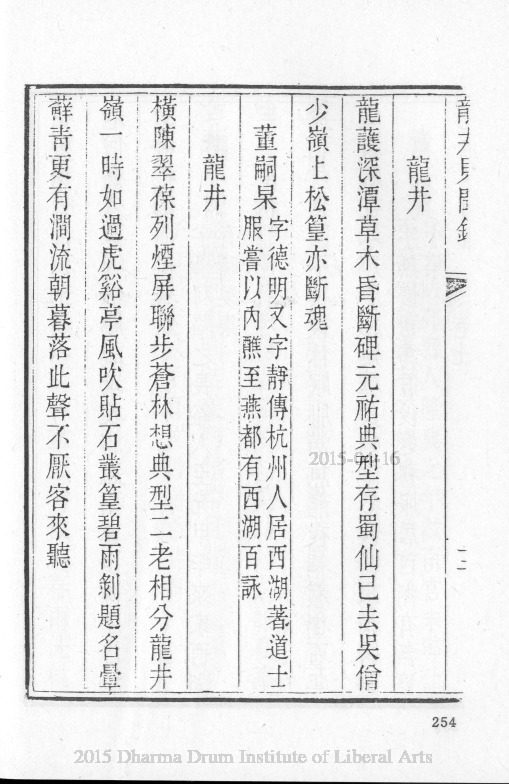 龍井見聞錄
龍井
龍護深潭草木昏斷碑元祐典型存蜀仙已去吳僧
少嶺上松篁亦斷魂
董嗣杲字德明又字靜傳杭州人居西湖著道士
服嘗以內醮至燕都有西湖百詠
龍井
橫陳翠葆列煙屏聯步蒼林想典型二老相分龍井
嶺一時如過虎谿亭風吹貼石叢篁碧雨剝題名暈
蘚靑更有澗流朝暮落此聲不厭客來聽
254
2015-04-16
2015 Dharma Drum Institute of Liberal Arts